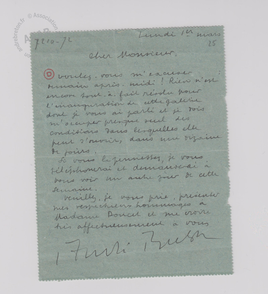 Lundi 1er mars
Cher Monsieur,
Voulez-vous m'excuser
demain après-midi ? Rien n'est
encore tout à fait résolu pour
l'inauguration de cette galerie
dont je vous ai parlé et je dois
m'occuper presque seul des
conditions dans lesquelles elle
peut s'ouvrir, dans une
de jours.
Si vous le permettez, je vous
téléphonerai et demanderai à
vous voir un autre jour de cette
semaine.
Veuillez, je vous prie, présenter
mes respectueux hommages à
Madame et me croire
très affectueusement à vous
André Breton